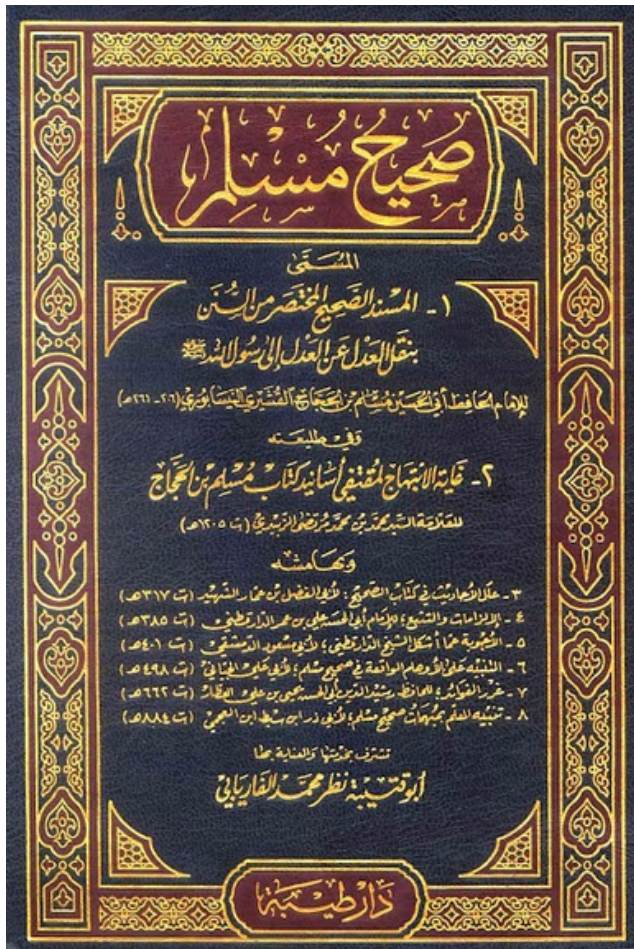 صَحِيحُ مُسْلِم
المُسَمَّى
١ - المُسْنَد الصَّحِيح المُخْتَصَر مِن السُّنَن
بنقل العدل عن العدل إلى رسول الله ﷺ
للإمام الحافظ أبي الحسين مسلم بن الحجاج القشيري النيسابوري (٢٠٦ - ٢٦١هـ)
وفي طليعته
٢ - غاية الابتهاج لمقتفي أسانيد كتاب مسلم بن الحجاج
للعلامة السيد محمد بن محمد مرتضى الزبيدي (ت ١٢٠٥هـ)
وبهامشه
٣ - علل الأحاديث في كتاب الصحيح: لأبي الفضل بن عمار الشهيد (ت ٣١٧هـ)
٤ - الإلزامات والتتبع؛ للإمام أبي الحسن علي بن عمر الدارقطني (ت ٣٨٥هـ)
٥ - الأجوبة عما أشكل الشيخ الدارقطني؛ لأبي مسعود الدمشقي (ت ٤٠١هـ)
٦ - التنبيه على الأوهام الواقعة في صحيح مسلم؛ لأبي علي الجياني (ت ٤٩٨هـ)
٧ - غرر الفوائد؛ للحافظ رشيد الدين أبي الحسن يحيى بن علي العطار (ت ٦٦٢هـ)
٨ - تنبيه المعلم بمبهمات صحيح مسلم؛ لأبي ذر ابن سبط ابن العجمي (ت ٨٨٤هـ)
تشرف بخدمتها والعناية بها
أبو قتيبة نظر محمد الفاريابي
دار طيبة